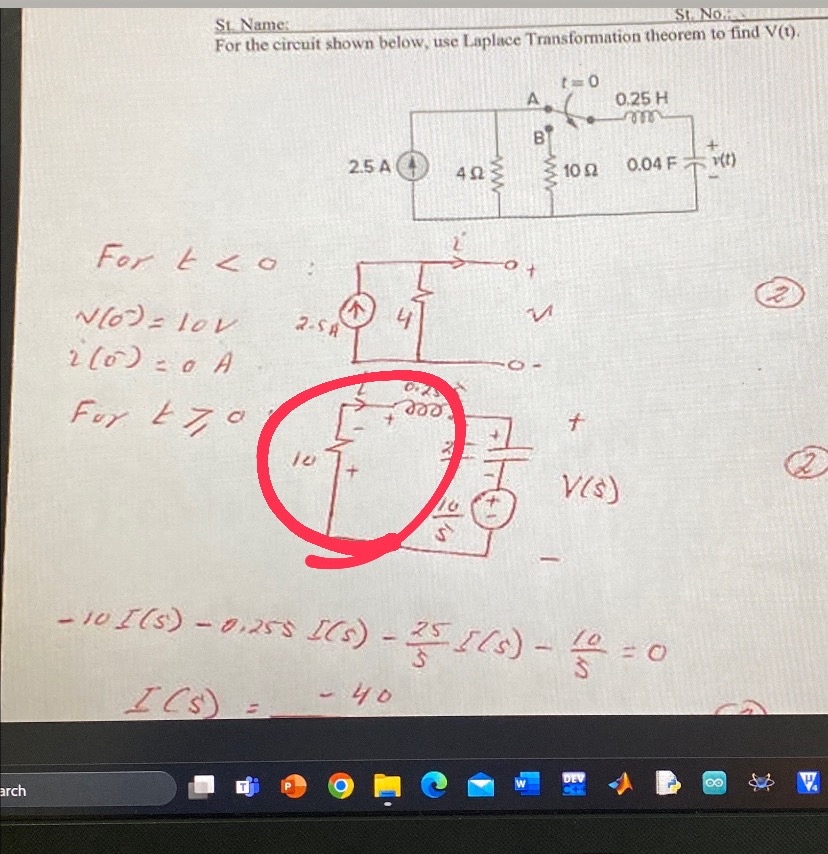 St. Name: St. No.:
For the circuit shown below, use Laplace Transformation theorem to find V(t).
t=0
A 0.25 H
B
2.5 A 4 Ω 10 Ω 0.04 F + v(t) −
For t < 0 : i
+
v(0⁻) = 10V 2.5A 4 V 2
i(0⁻) = 0 A −
For t ≥ 0 : i
+ − +
10 + − V(s) 2
10/s + −
−
-10 I(s) - 0.25s I(s) - 25/s I(s) - 10/s = 0
I(s) = -40
arch
DEV
C++